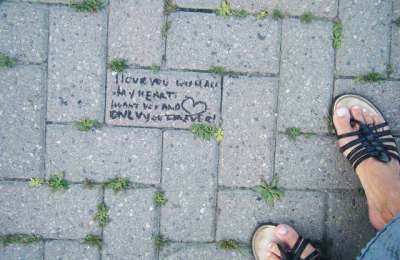 I LOVE YOU WITH ALL
MY HEART.
I WANT YOU AND
ONLY YOU FOREVER!